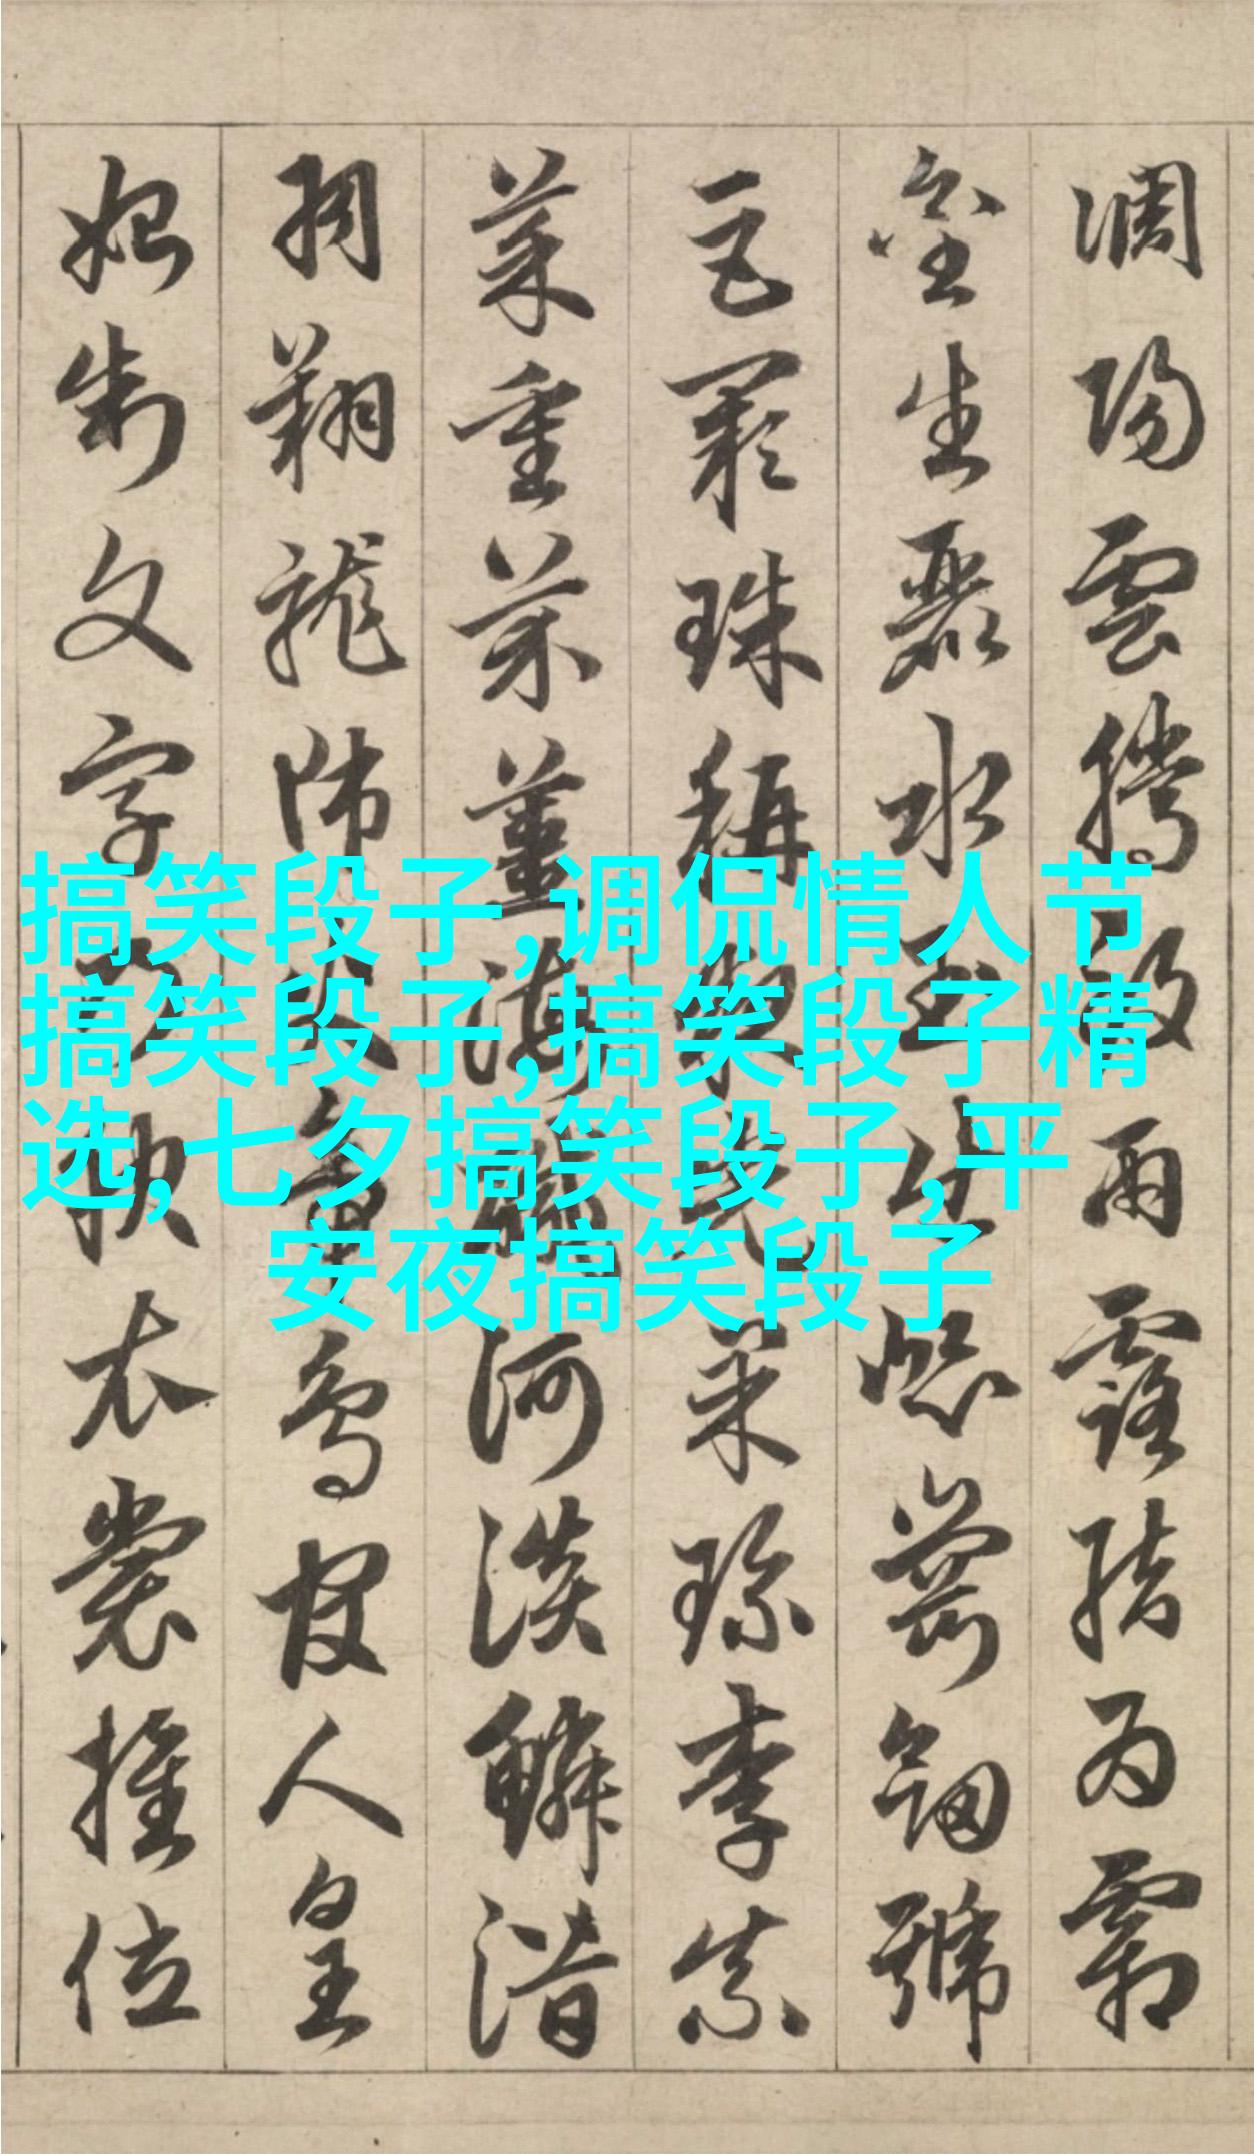 調陽雲騰致雨露結為霜
金生麗水玉出崑崗劒號
巨闕珠稱夜光菓珍李柰
菜重芥薑海鹹河淡鱗潛
羽翔龍師火帝鳥官人皇
始制文字乃服衣裳推位
搞笑段子,调侃情人节
搞笑段子,搞笑段子精
选,七夕搞笑段子,平
安夜搞笑段子